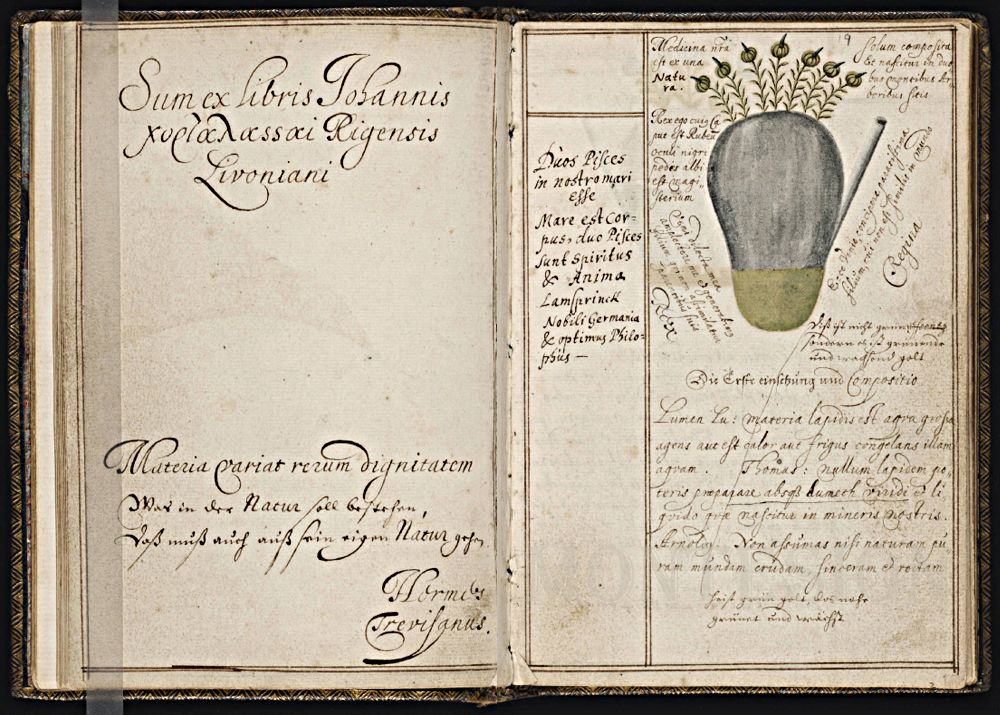 Sum ex libris Johannis
χυρίαλαεssαi Rigensis
Livoniani
Materia variat rerum dignitatem
Was in der Natur soll bestehen,
Daß muß auch auß sein eigen Natur gehen.
Hermes
Trevisanus.
Duos Pisces
in nostro mari
esse
Mare est Cor-
pus, duo Pisces
sunt Spiritus
& Anima
Lamsprinck
Nobili Germania
& optimus Philo-
phüs —
19
Medicina nra
est ex una
Natu-
ra.
Rex ego cuius Ca
put est Ruben
oculi nigri
pedes albi
est magi-
sterium
Rex
Solum composita
& nascitur in duo
bus montibus Ar-
boribus sitis
Regina
Diß ist nicht grün
sondern es ist grünende
und wachsend golt
Die Erste einsetzung und Compositio
Lumen Lu: materia lapidis est aqua grossa
agens aut est calor aut frigus congelans illam
aqvam. Thomas: nullum lapidem po,
teris præparare absqβ duenech viridi et li
quido quæ nascitur in mineris nostris.
Arnoldq. Non assumas nisi naturam pu,
ram mundam crudam, sinceram et rectam
heist grün golt, das nahe
grünet und wächst